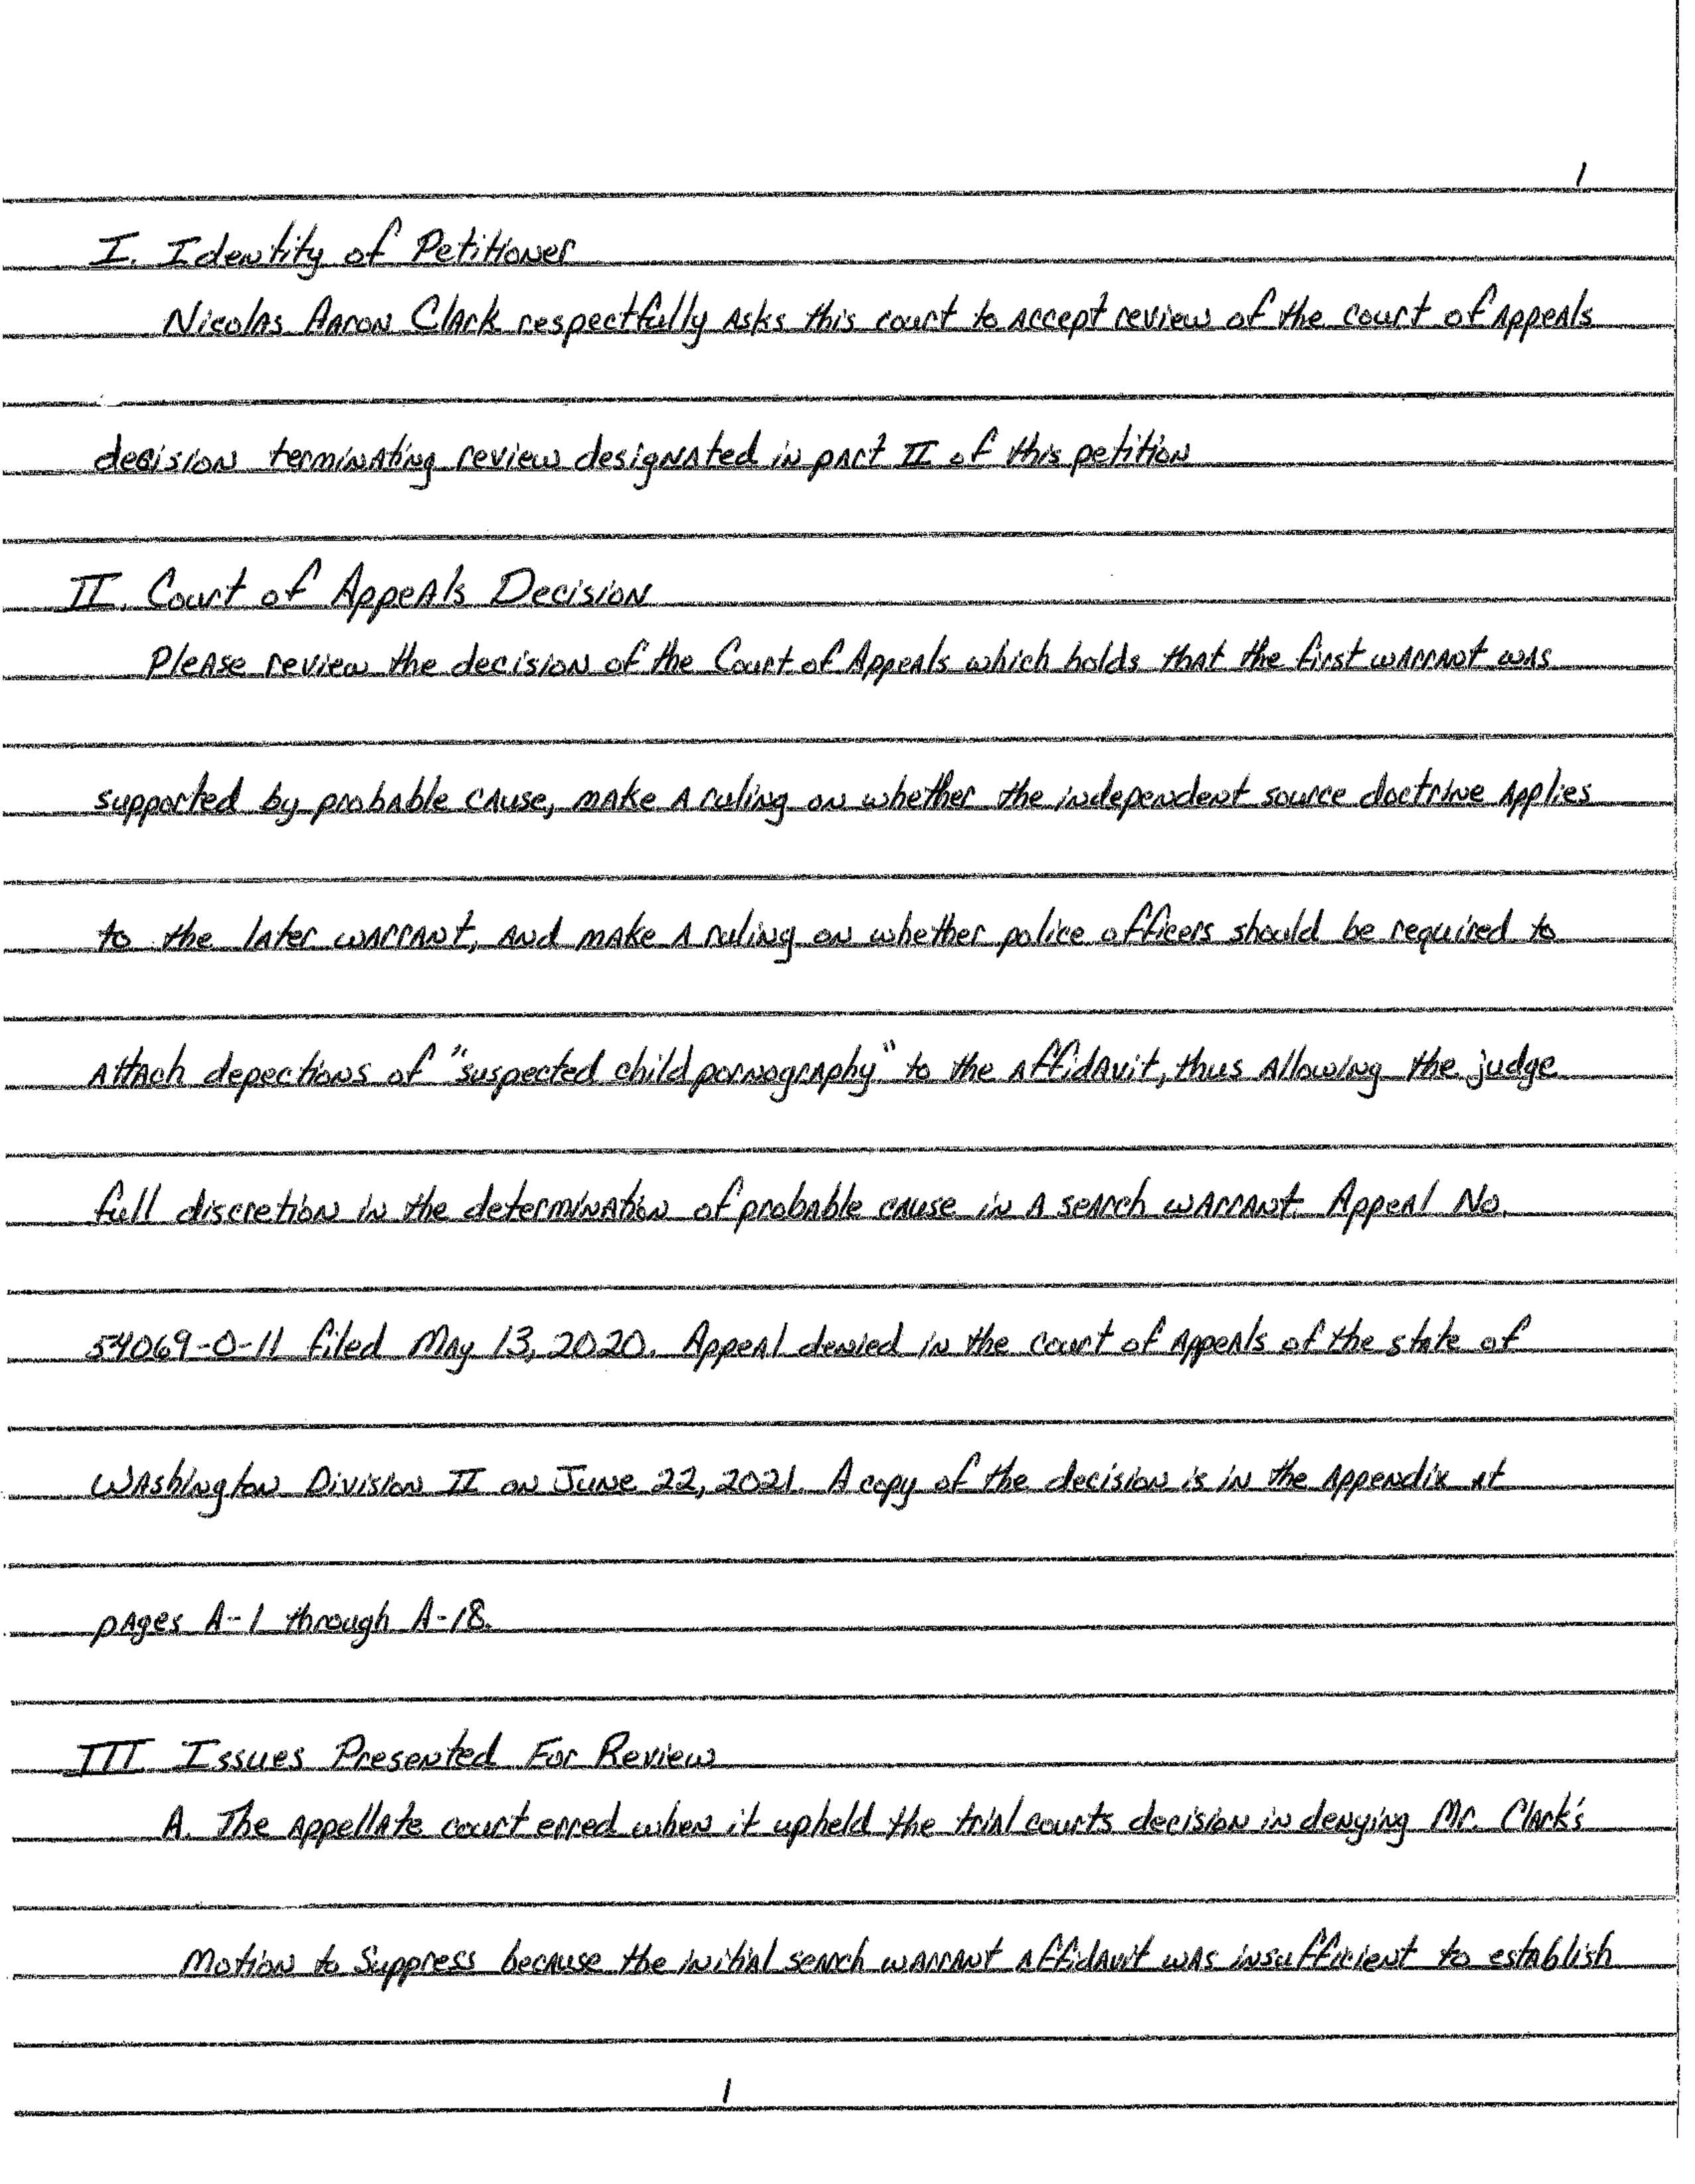 1
I. Identity of Petitioner
Nicolas Aaron Clark respectfully asks this court to accept review of the court of Appeals
decision terminating review designated in part II of this petition
II. Court of Appeals Decision
Please review the decision of the Court of Appeals which holds that the first warrant was
supported by probable cause, make a ruling on whether the independent source doctrine applies
to the later warrant, and make a ruling on whether police officers should be required to
attach depections of "suspected child pornography" to the affidavit, thus allowing the judge
full discretion in the determination of probable cause in a search warrant. Appeal No.
54069-0-11 filed May 13, 2020. Appeal denied in the court of appeals of the state of
Washington Division II on June 22, 2021. A copy of the decision is in the Appendix at
pages A-1 through A-18.
III. Issues Presented For Review
A. The appellate court erred when it upheld the trial courts decision in denying Mr. Clark's
Motion to Suppress because the initial search warrant affidavit was insufficient to establish
1